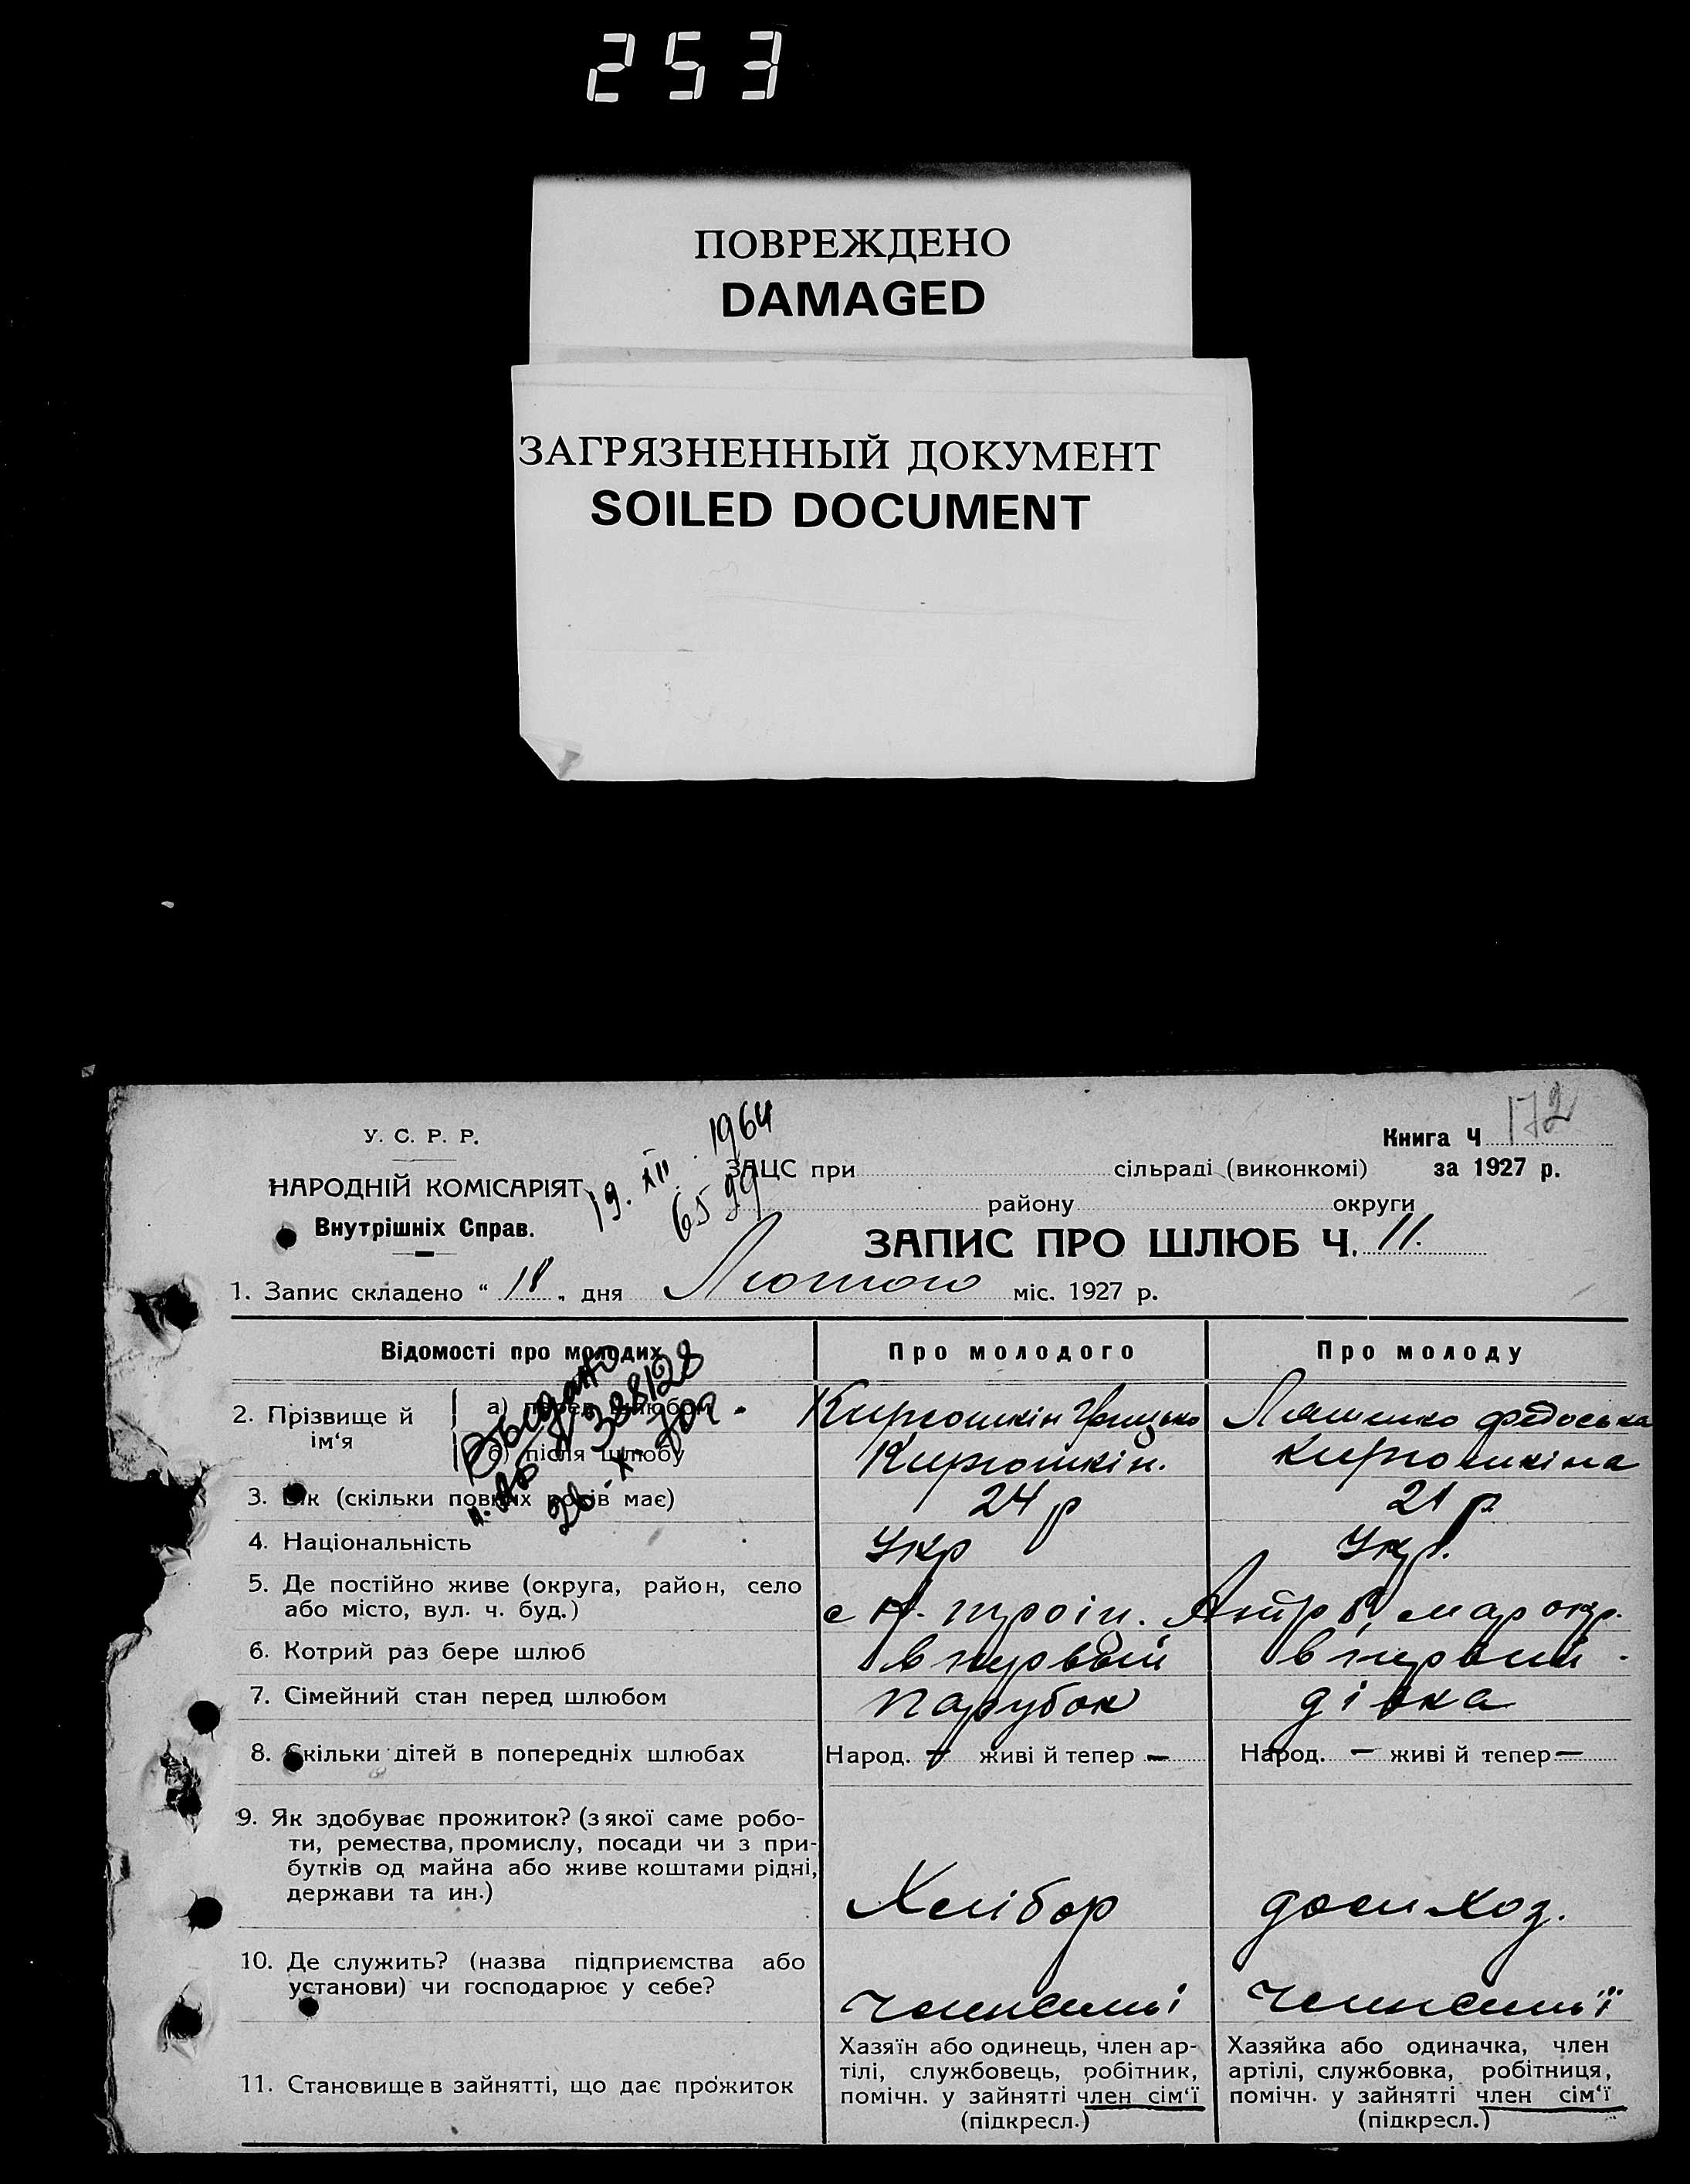 253
ПОВРЕЖДЕНО
DAMAGED
ЗАГРЯЗНЕННЫЙ ДОКУМЕНТ
SOILED DOCUMENT
У. С. Р. Р.
НАРОДНІЙ КОМІСАРІЯТ
Внутрішніх Справ.
19. XII. 1964
6599
Книга Ч 172
ЗАЦС при сільраді (виконкомі) за 1927 р.
району округи
ЗАПИС ПРО ШЛЮБ Ч. 11.
1. Запис складено “ 18 „ дня Лютого міс. 1927 р.
Відомості про молодих
Про молодого
Про молоду
Выдано
328/28
2. Прізвище й ім‘я
а) перед шлюбом
Кирюшкін Грицько
Ляшенко Федоська
б) після шлюбу
Кирюшкін.
Кирюшкіна
3. Вік (скільки повних років має)
24 р
21 р.
4. Національність
Укр
Укр.
5. Де постійно живе (округа, район, село
або місто, вул. ч. буд.)
с Н. троїц. мар окр.
6. Котрий раз бере шлюб
в первый
в первий
7. Сімейний стан перед шлюбом
Парубок
дівка
8. Скільки дітей в попередніх шлюбах
Народ. — живі й тепер —
Народ. — живі й тепер —
9. Як здобуває прожиток? (з якої саме робо-
ти, ремества, промислу, посади чи з при-
бутків од майна або живе коштами рідні,
держави та ин.)
Хлібор
дом хоз.
10. Де служить? (назва підприємства або
установи) чи господарює у себе?
член семьі
член семьї
11. Становище в зайнятті, що дає прожиток
Хазяїн або одинець, член ар-
тілі, службовець, робітник,
помічн. у зайнятті член сім‘ї
(підкресл.)
Хазяйка або одиначка, член
артілі, службовка, робітниця,
помічн. у зайнятті член сім‘ї
(підкресл.)